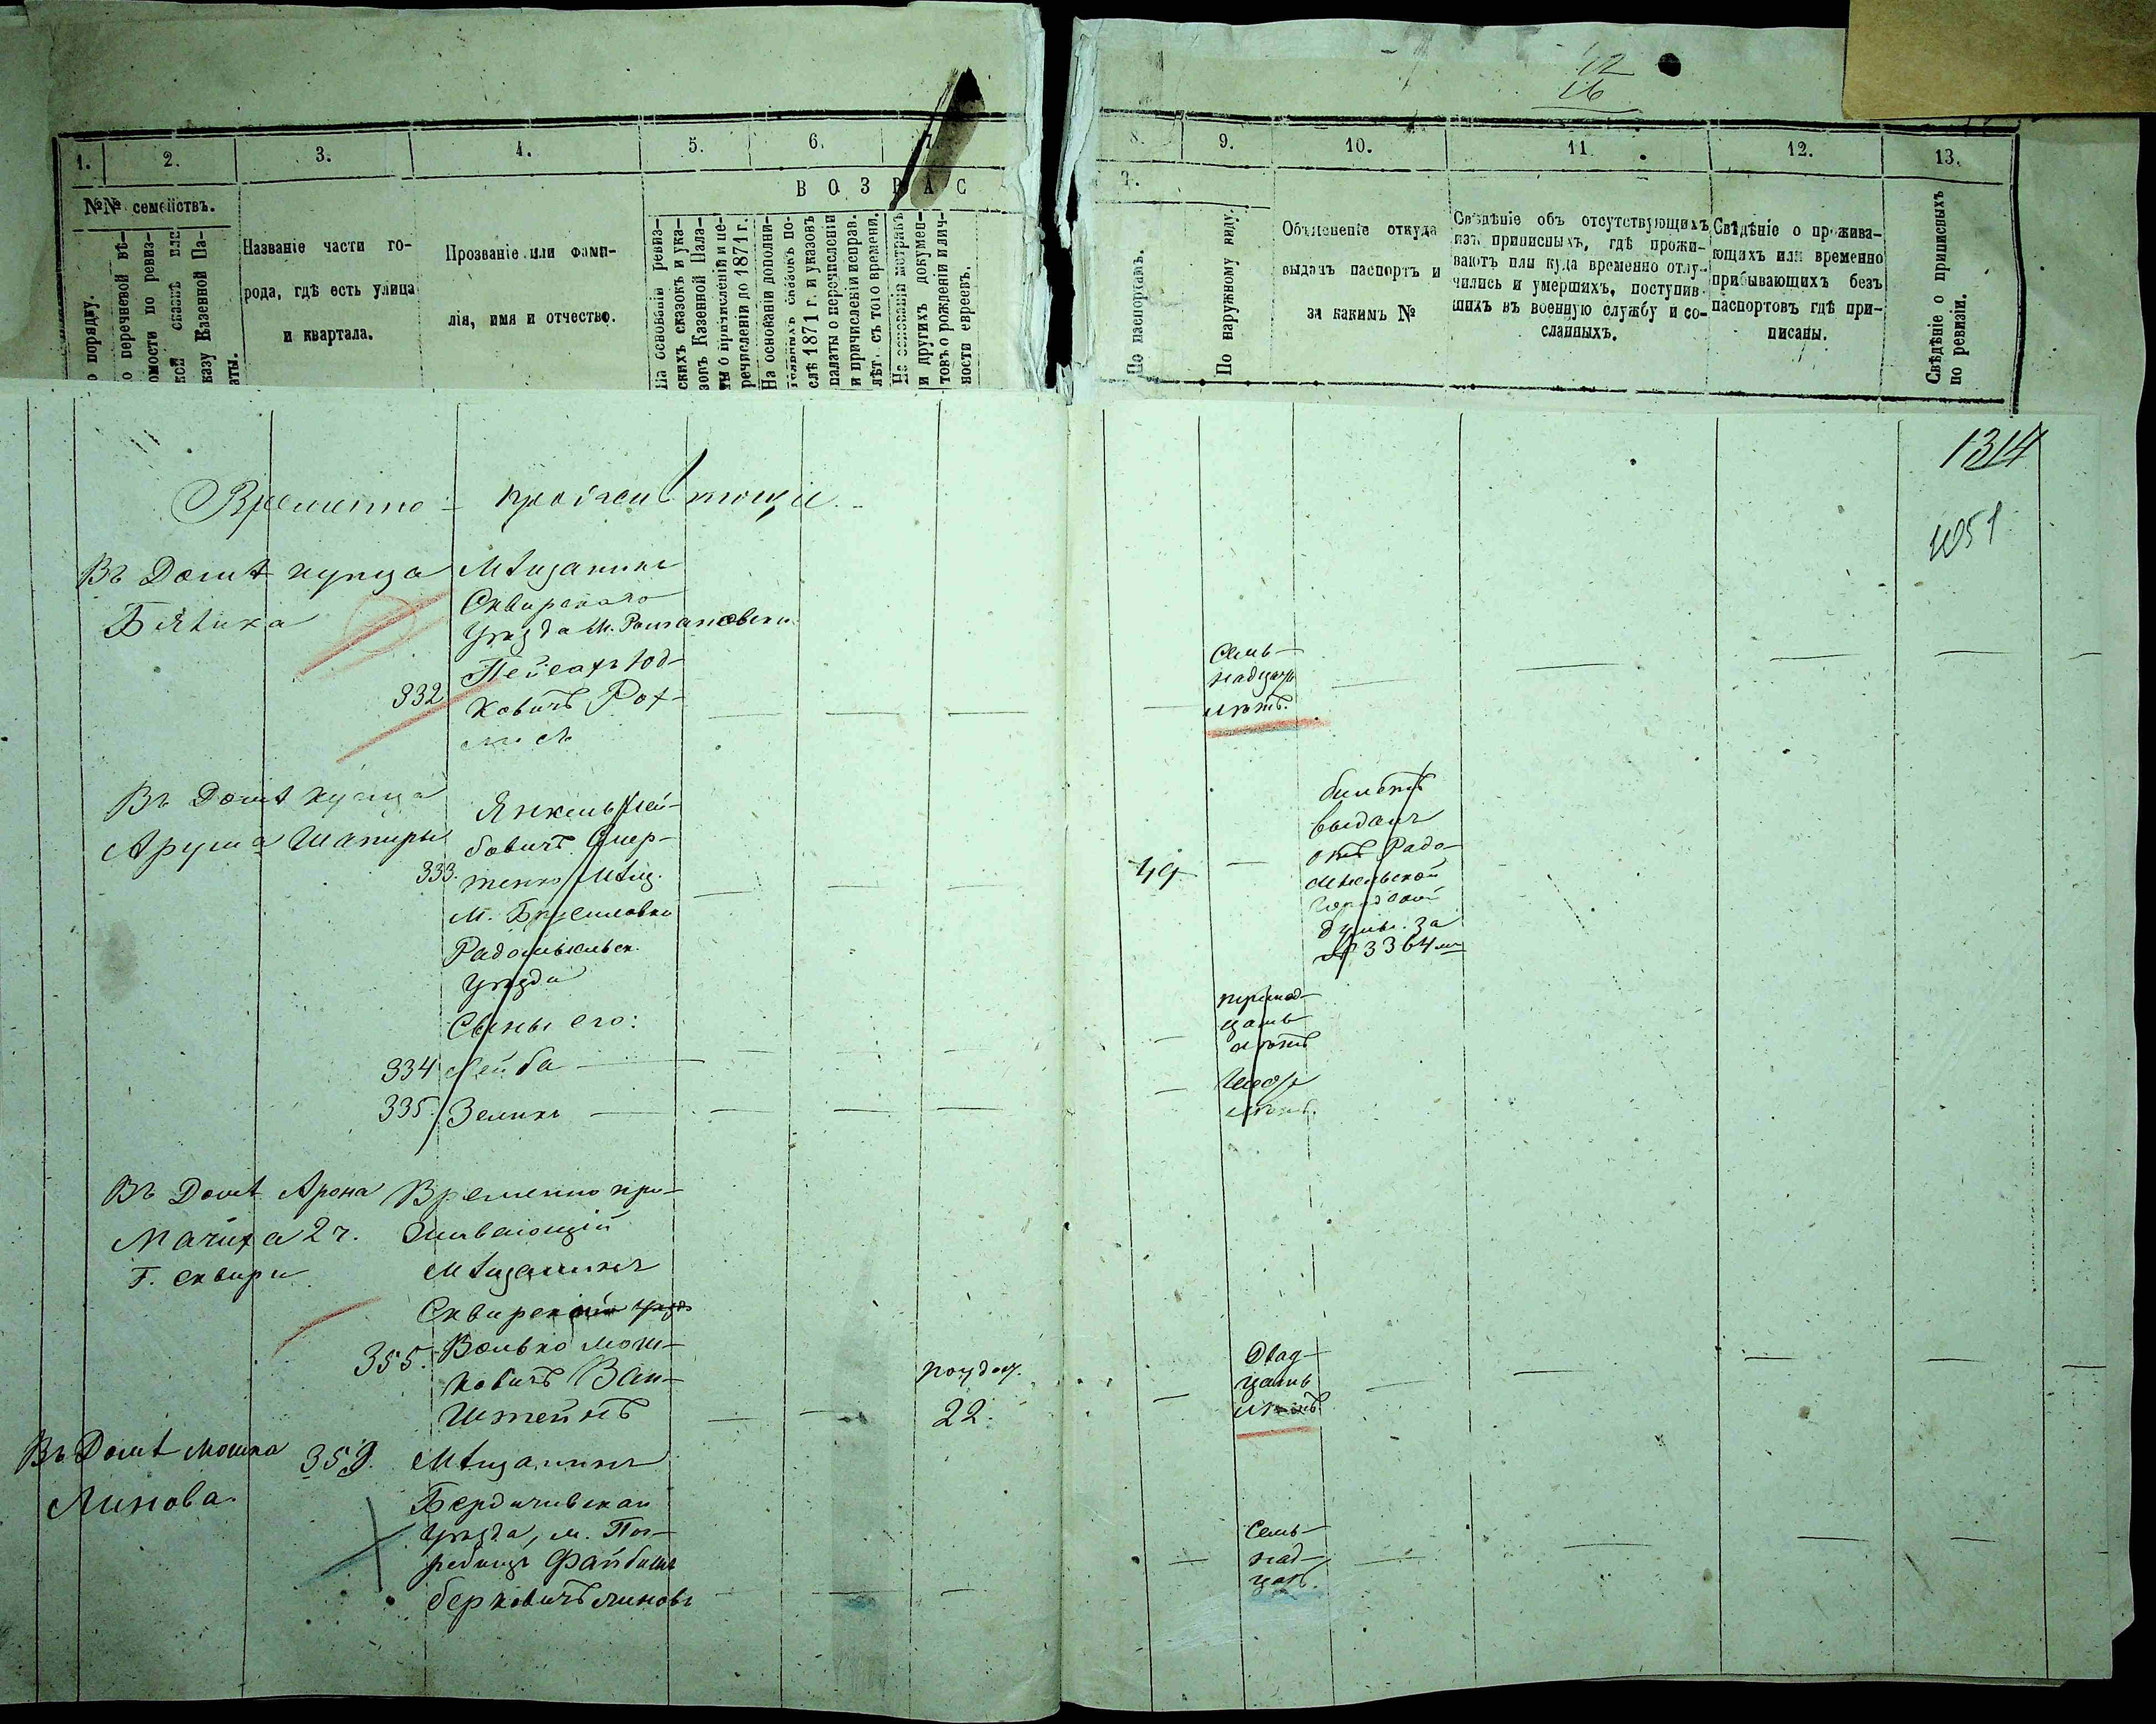 12
16
1. 2. 3. 4. 5. 6. 7.
8. 9. 10. 11. 12. 13.
ВОЗРАС
Т.
№№ семействъ.
о порядку.
о перечневой вѣ-
омости по ревиз-
ской сказкѣ или
казу Казенной Па-
аты.
Названіе части го-
рода, гдѣ есть улица
и квартала.
Прозваніе или фами-
лія, имя и отчество.
На основаніи ревиз-
скихъ сказокъ и ука-
зовъ Казенной Пала-
ты о причисленіи и пе-
речисленіи до 1871 г.
На основаніи дополни-
тельныхъ сказокъ по-
слѣ 1871 г. и указовъ
палаты о перечисленіи
и причисленіи исправ.
лѣт. съ того времени.
На основаніи метрикъ
и другихъ докумен-
товъ о рожденіи и лич-
ности евреевъ.
По паспортамъ.
По наружному виду.
Объясненіе откуда
выданъ паспортъ и
за какимъ №
Свѣдѣніе объ отсутствующихъ
изъ приписныхъ, гдѣ прожи-
ваютъ или куда временно отлу-
чились и умершихъ, поступив-
шихъ въ военную службу и со-
сланныхъ.
Свѣдѣніе о прожива-
ющихъ или временно
прибывающихъ безъ
паспортовъ гдѣ при-
писаны.
Свѣдѣніе о приписныхъ
по ревизіи.
1314
1051
Временно-проживающіе.
Въ Домѣ купца
Бялика
332
Мѣщанинъ
Сквирскаго
Уѣзда М. Романовки
Пейсахъ Юд-
ковичъ Рох-
лисъ
Семь-
надцать
лѣтъ.
Въ Домѣ купца
Арума Шапиры
333.
Янкель Лей-
бовичъ Спер-
тенко Мѣщ.
М. Брусиловки
Радомысльск.
Уѣзда
49
билетъ
выданъ
отъ Радо-
мысльской
Городской
думы. За
№ 3364мъ
Сыны его:
334 Лейба
тринад-
цать
лѣтъ
335. Зеликъ
Шесть
лѣтъ.
Въ Домѣ Арона
Мачиха 2 ч.
Г. Сквири
Временно про-
живающій
Мѣщанинъ
Сквирскій уѣзд
355. Волько Мош-
ковичъ Ван-
штейнъ
22.
Двад-
цать
лѣтъ
Въ Домѣ Мошка
Линова
359. Мѣщанинъ
Бердичивскаи
Уѣзда, м. Пог-
ребищъ Файбишъ
берковичъ Линовъ
Семь-
над-
цать.